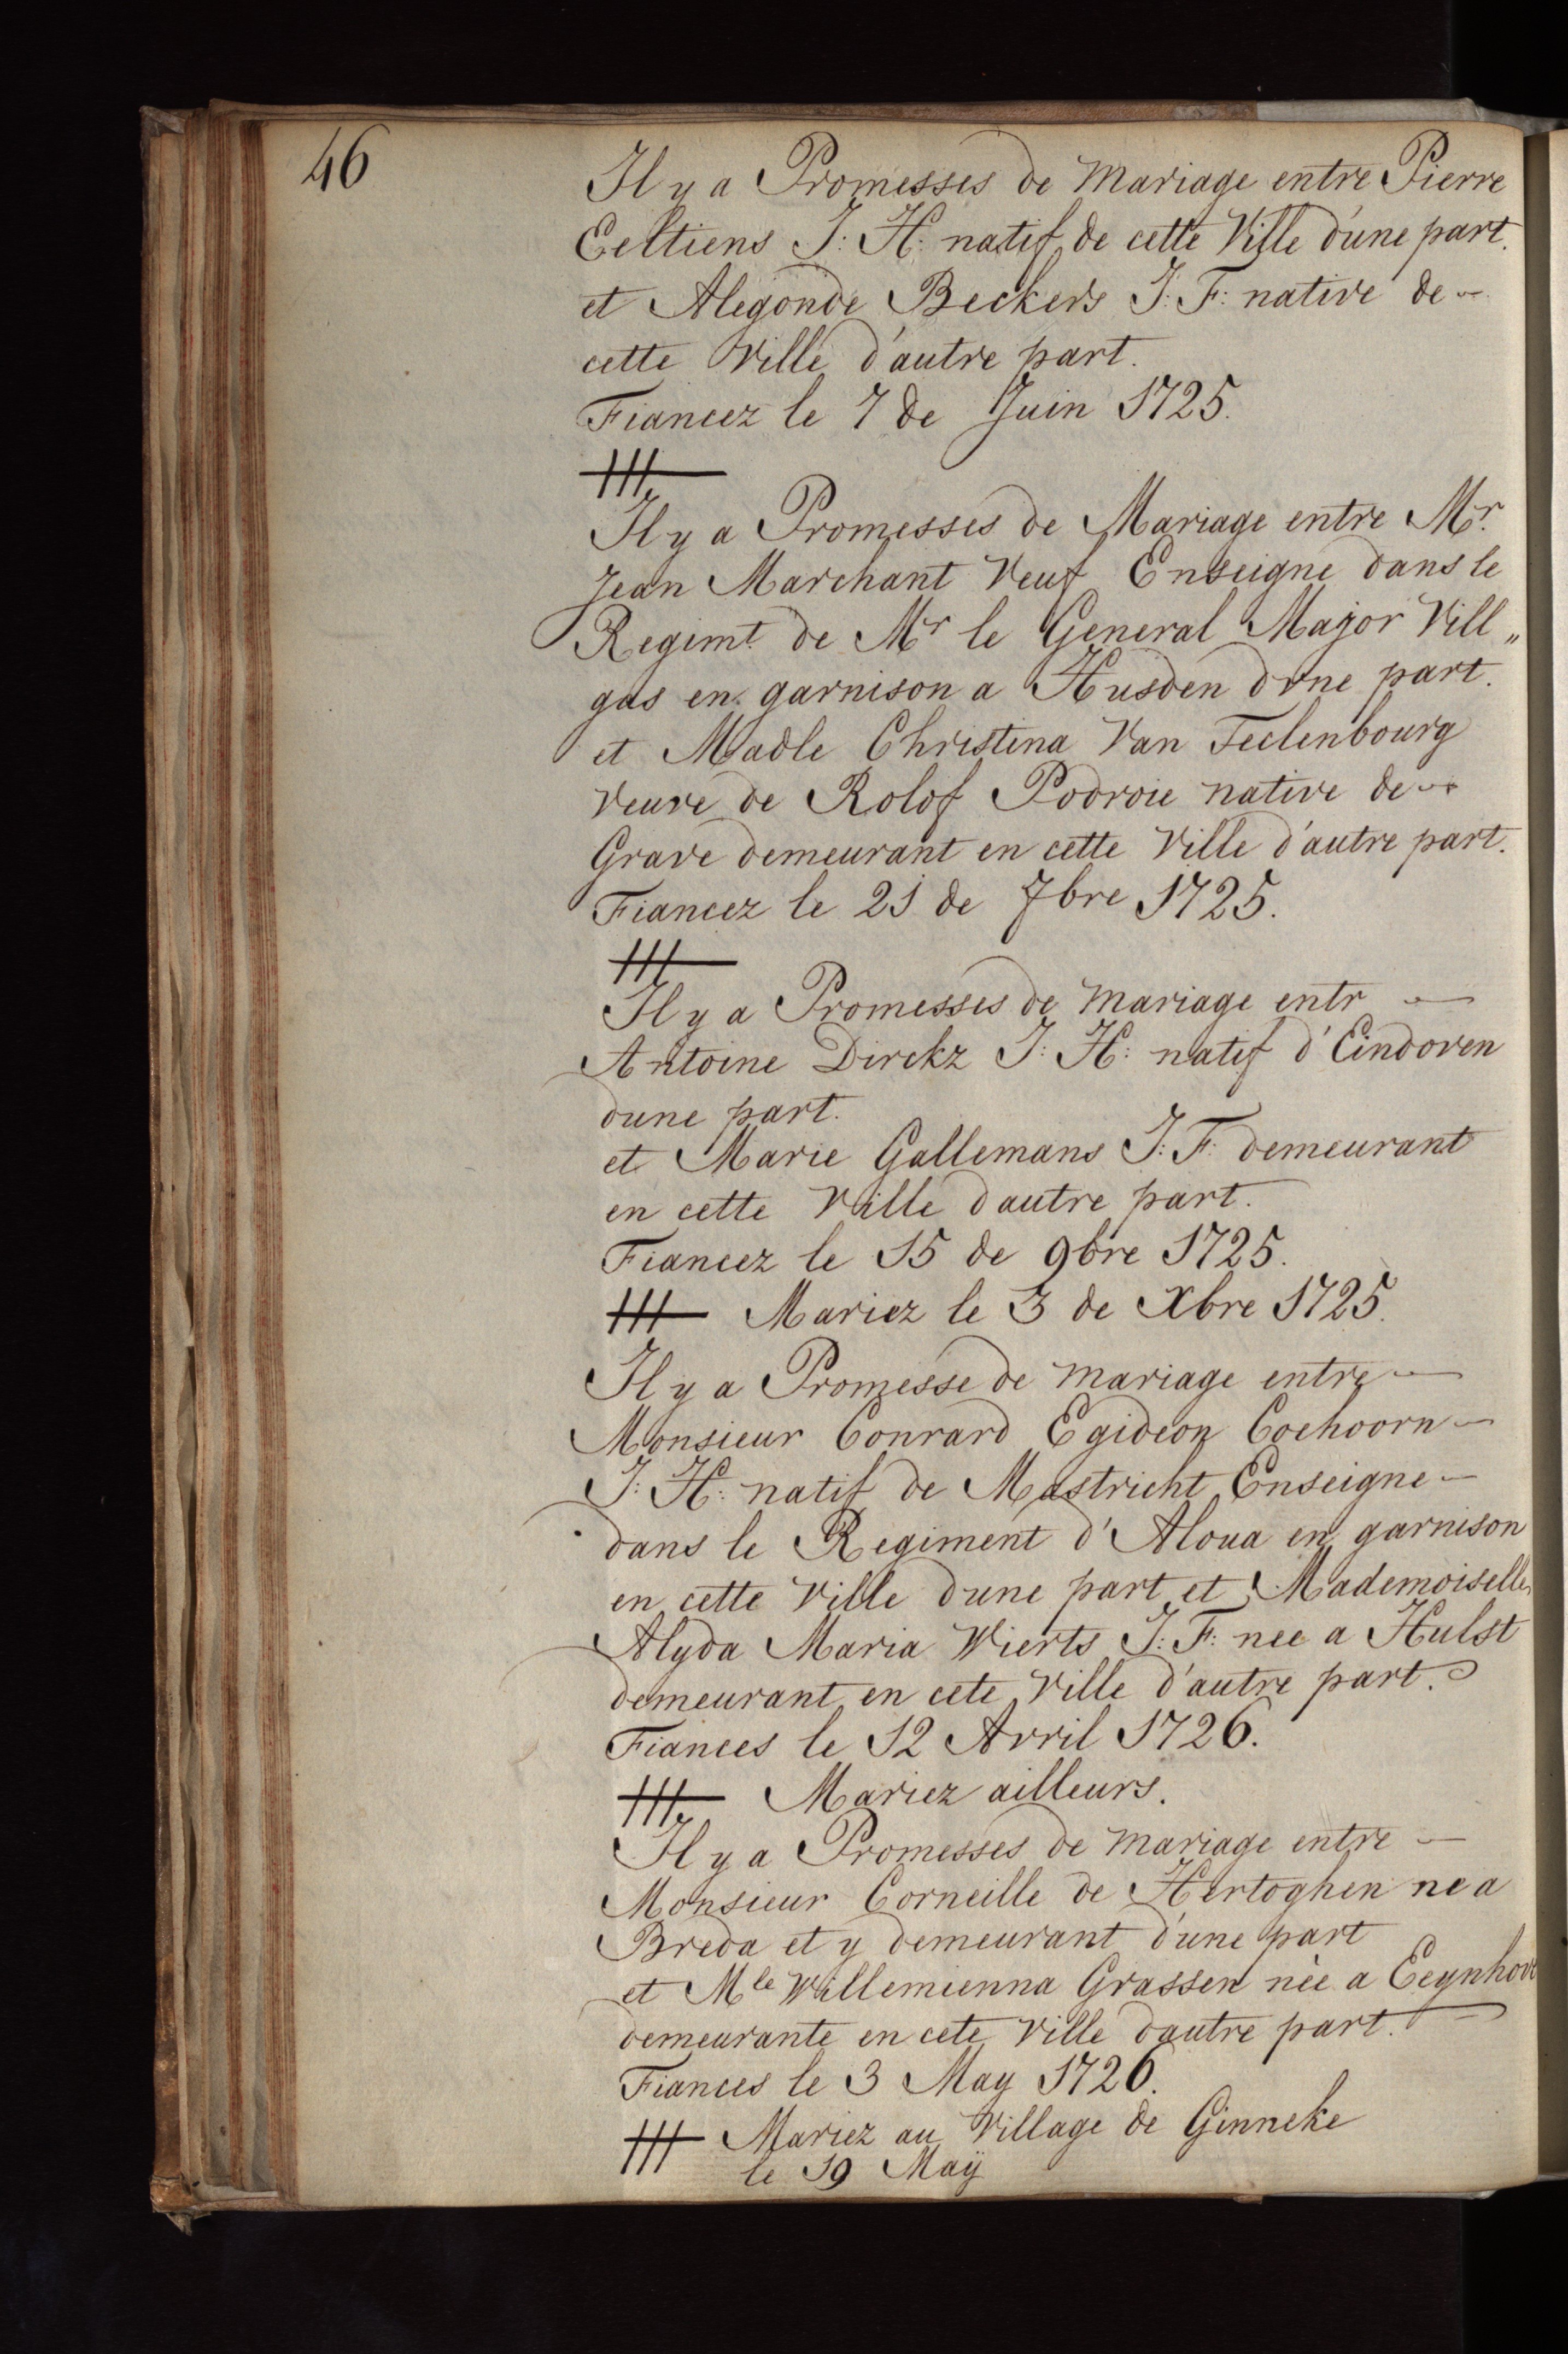 46
Il y a Promesses de Mariage entre Pierre
Eeltiens J: H: natif de cette Ville d'une part.
et Alegonde Beckers J: F: native de
cette Ville d'autre part.
Fiancez le 7 de Juin 1725.
Il y a Promesses de Mariage entre Mr.
Jean Marchant Veuf Enseigne dans le
Regimt. de Mr le General Major Vill„
gas en garnison a Husden dune part.
et Madle Christina Van Teclenbourg
Veuve de Rolof Podroie native de
Grave demeurant en cette Ville d'autre part.
Fiancez le 21 de 7bre 1725.
Il y a Promesses de Mariage entr
Antoine Dirckz J: H: natif d'Eindoven
dune part.
et Marie Gallemans J: F: demeurant
en cette Ville dautre part.
Fiancez le 15 de 9bre 1725.
Mariez le 3 de Xbre 1725.
Il y a Promesse de mariage entre
Monsieur Conrard Egideon Coehoorn
J: H: natif de Mastricht Enseigne
dans le Regiment d'Aloua en garnison
en cette Ville dune part et Mademoiselle
Alyda Maria Wierts J: F: nee a Hulst
demeurant en cete Ville d'autre part.
Fiances le 12 Avril 1726.
Mariez ailleurs.
Il y a Promesses de mariage entre
Monsieur Corneille de Hertoghen ne a
Breda et y demeurant d'une part
et Mle Willemienna Grassen née a Eeynhov
demeurante en cete Ville dautre part.
Fiances le 3 May 1726.
Mariez au Village de Ginneke
le 19 Maÿ